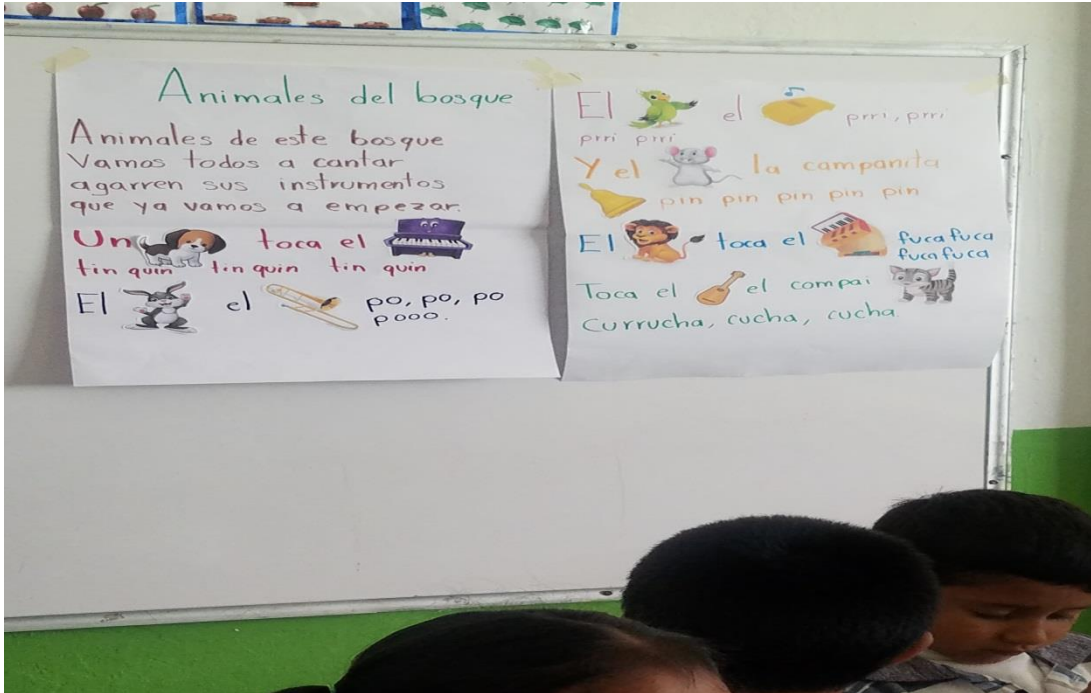 Animales del bosque
Animales de este bosque
Vamos todos a cantar
agarren sus instrumentos
que ya vamos a empezar.
Un toca el
tin quin tin quin tin quin
El el po, po, po
pooo.
El el prri, prri
prri prri
Y el la campanita
pin pin pin pin pin
El toca el fuca fuca
fuca fuca
Toca el el compai
Currucha, cucha, cucha.